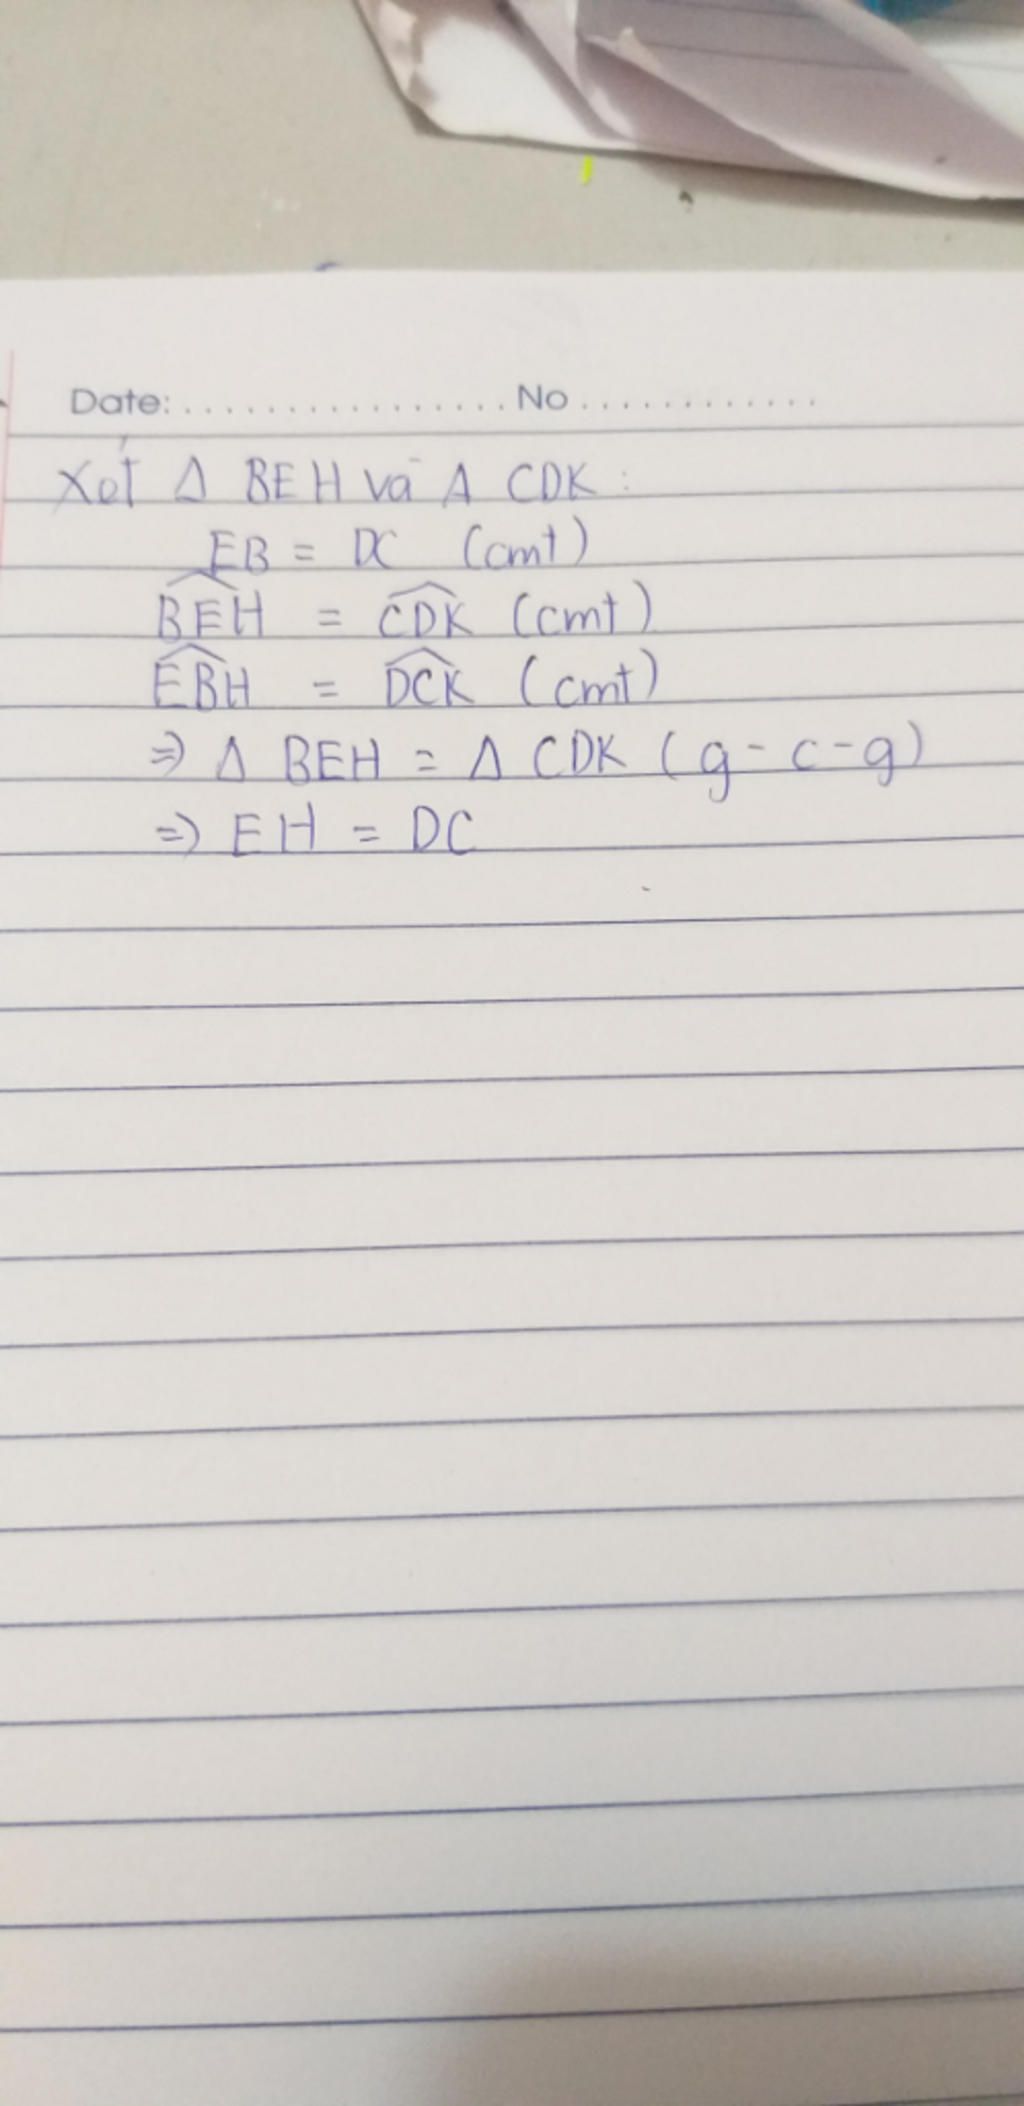 Date: ................ No ............
Xét Δ BEH và Δ CDK :
EB = DC (cmt)
$\widehat{BEH}$ = $\widehat{CDK}$ (cmt)
$\widehat{EBH}$ = $\widehat{DCK}$ (cmt)
=> Δ BEH = Δ CDK (g-c-g)
=> EH = DC